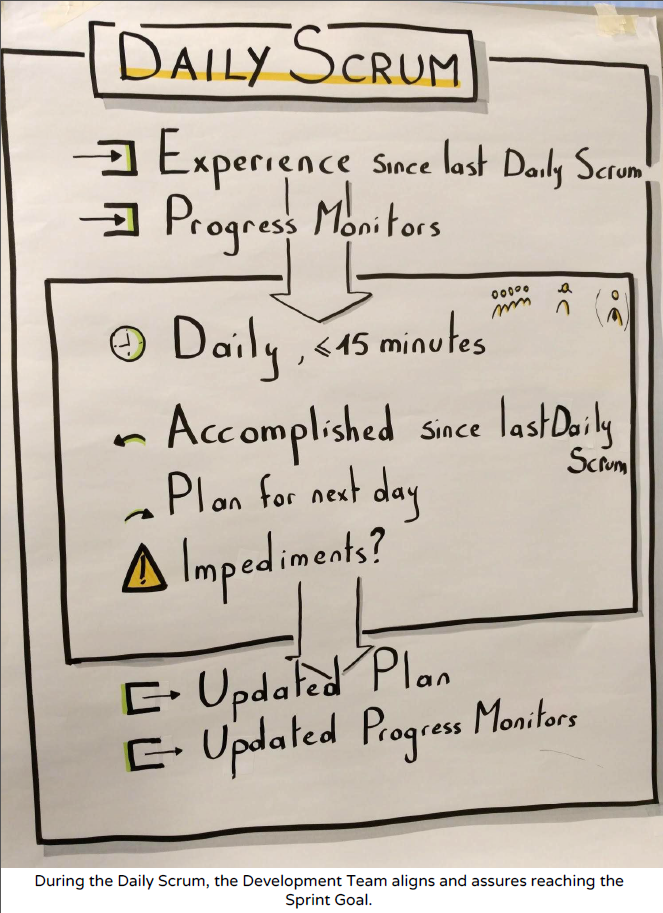 DAILY SCRUM
Experience since last Daily Scrum
Progress Monitors
Daily, ≤15 minutes
Accomplished since last Daily
Scrum
Plan for next day
Impediments?
Updated Plan
Updated Progress Monitors
During the Daily Scrum, the Development Team aligns and assures reaching the
Sprint Goal.